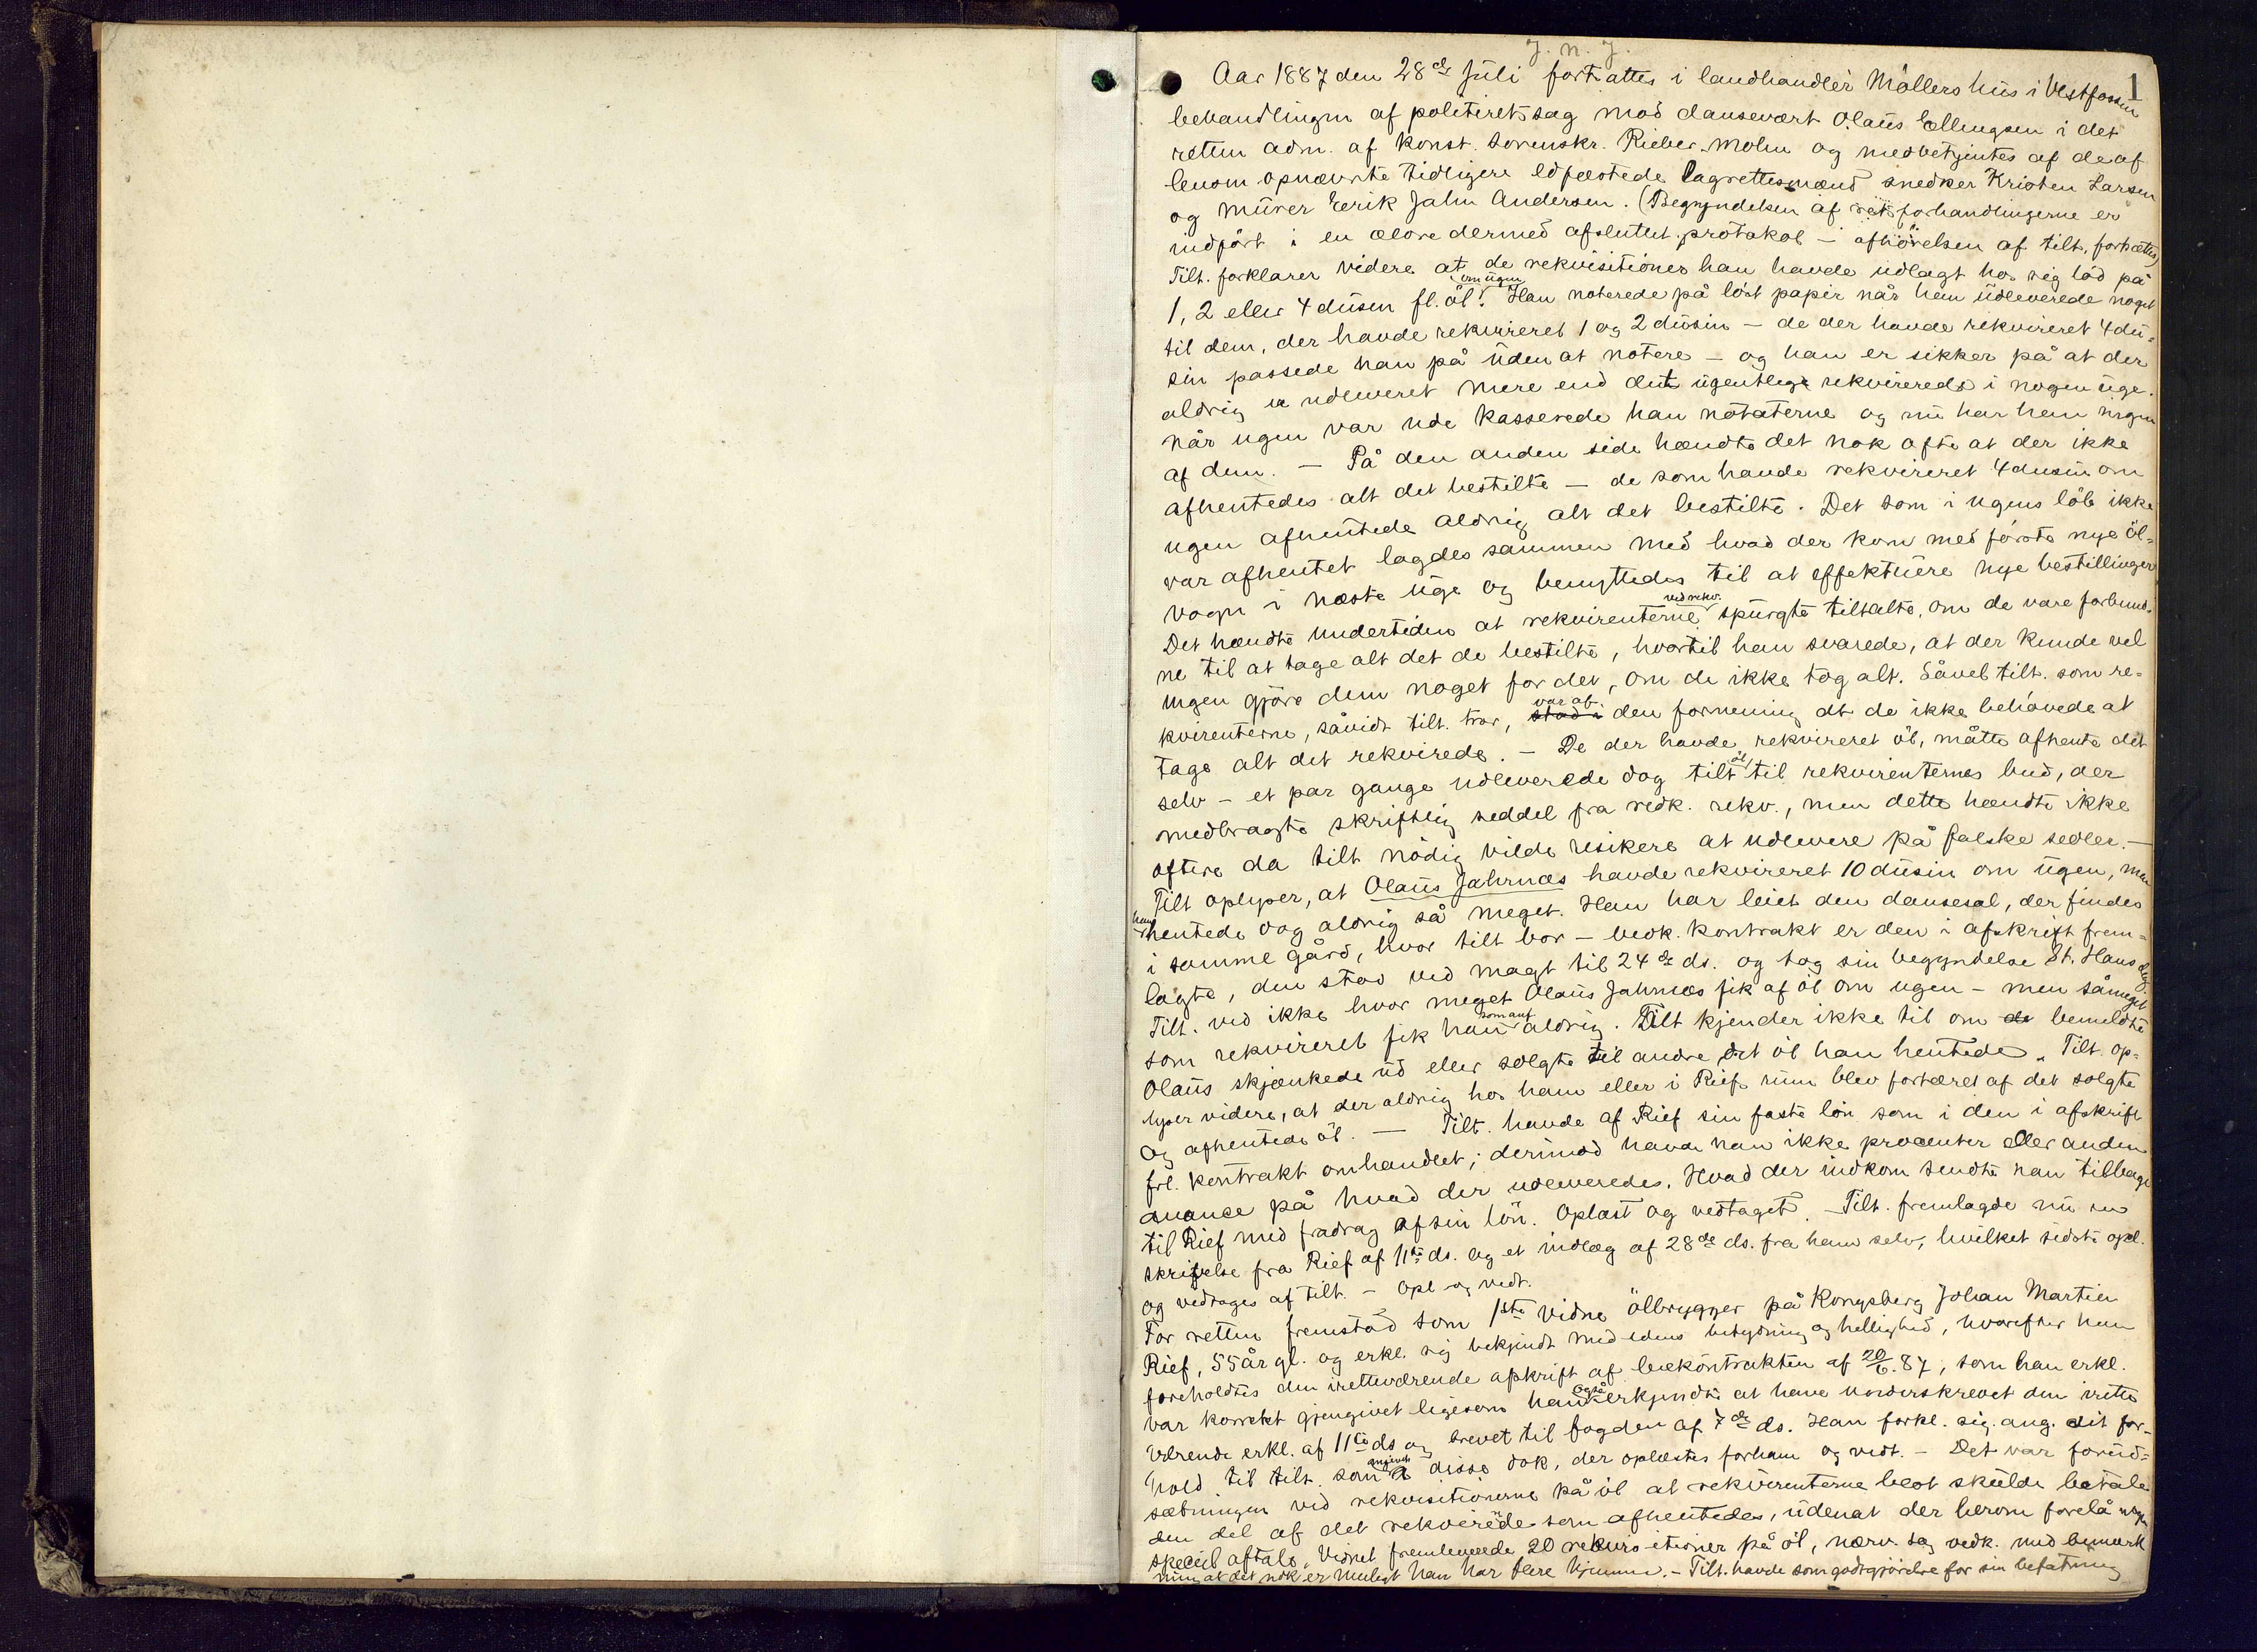 J. n. J.
1
Aar 1887 den 28de Juli fortsattes i landhandler Møllers hus i Vestfossen
behandlingen af politiretssag mod dansevært Olaus Ellingsen i det
retten adm. af konst. sorenskr. Rieber-Mohn og medbetjentes af de af
lensm opnævnte tidligere edfæstede lagrettesmænd snedker Kristen Larsen
og murer Erik Jahn Andersen. (Begyndelsen af retsforhandlingerne er
indført i en ældre dermed afsluttet protokol – afhørelsen af tilt. fortsættes)
Tilt. forklarer videre at de rekvisitioner han havde udlagt hos sig lød på
1, 2 eller 4 dusin fl. øl om ugen. Han noterede på løst papir når han udleverede noget
til dem, der havde rekvireret 1 og 2 dusin – de der havde rekvireret 4 du-
sin passede han på uden at notere – og han er sikker på at der
aldrig er udleveret mere end det ugentlige rekvirerede i nogen uge.
Når ugen var ude kasserede han notaterne og nu har han ingen
af dem. – På den anden side hændte det nok ofte at der ikke
afhentedes alt det bestilte – de som havde rekvireret 4 dusin om
ugen afhentede aldrig alt det bestilte. Det som i ugens løb ikke
var afhentet lagdes sammen med hvad der kom med første nye øl-
vogn i næste uge og benyttedes til at effektuere nye bestillinger
Det hændte undertiden at rekvirenterne ved rekv. spurgte tiltalte, om de vare forbund-
ne til at tage alt det de bestilte, hvortil han svarede, at der kunde vel
ingen gjøre dem noget for det, om de ikke tog alt. Såvel tilt. som re-
kvirenterne, såvidt tilt. tror, stod i var af den formening at de ikke behøvede at
tage alt det rekvirede. – De der havde rekvireret øl, måtte afhente det
selv – et par gange udleverede dog tilt øl til rekvirenternes bud, der
medbragte skriftlig seddel fra vedk. rekv., men dette hændte ikke
oftere da tilt nødig vilde risikere at udlevere på falske sedler. –
Tilt oplyser, at Olaus Jahrnæs havde rekvireret 10 dusin om ugen, men
han hentede dog aldrig så meget. Han har leiet den dansesal, der findes
i samme gård, hvor tilt bor – vedk. kontrakt er den i afskrift frem-
lagte, den stod ved magt til 24de ds. og tog sin begyndelse St. Hans dag.
Tilt. ved ikke hvor meget Olaus Jahrnæs fik af øl om ugen – men såmeget
som rekvireret fik han som anf aldrig. Tilt kjender ikke til om de bemeldte
Olaus skjænkede ud eller solgte til andre det øl han hentede. Tilt. op-
lyser videre, at der aldrig hos ham eller i Riefs rum blev fortæret af det solgte
og afhentede øl. – Tilt. havde af Rief sin faste løn som i den i afskrift
frl. kontrakt omhandlet; derimod havde han ikke procenter eller anden
avance på hvad der udleveredes. Hvad der indkom sendte han tilbage
til Rief med fradrag af sin løn. Oplæst og vedtaget. – Tilt. fremlagde nu en
skrivelse fra Rief af 11te ds. og et indlæg af 28de ds. fra ham selv, hvilket sidste opl.
og vedtoges af tilt. – Opl og vedt.
For retten fremstod som 1ste vidne ølbrygger på Kongsberg Johan Martin
Rief, 55 år gl. og erkl. sig bekjendt med edens betydning og hellighed, hvorefter han
foreholdtes den iretteværende afskrift af leiekontrakten af 20/6.87, som han erkl.
var korrekt gjengivet ligesom han også erkjendte at have underskrevet den irette
værende erkl. af 11te ds og brevet til fogden af 7de ds. Han forkl. sig ang. sit for-
hold til tilt. som angivet i disse dok, der oplæstes for ham og vedt. – Det var forud-
sætningen ved rekvisitionerne på øl at rekvirenterne blot skulde betale
den del af det rekvirerede som afhentedes, uden at der herom forelå nogen
speciel aftale. Vidnet fremleverede 20 rekvisitioner på øl, nærv. sag vedk. med bemærk
ning at det nok er muligt han har flere hjemme. – Tilt. havde som godtgjørelse for sin befatning